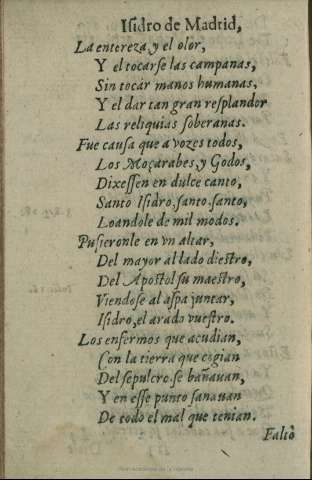 Isidro de Madrid,
La entereza, y el olor,
Y el tocarse las campanas,
Sin tocar manos humanas,
Y el dar tan gran resplandor
Las reliquias soberanas.
Fue causa que a vozes todos,
Los Moçarabes, y Godos,
Dixessen en dulce canto,
Santo Isidro, santo, santo,
Loandole de mil modos.
Pusieronle en vn altar,
Del mayor al lado diestro,
Del Apostol su maestro,
Viendose al aspa juntar,
Isidro, el arado vuestro.
Los enfermos que acudian,
Con la tierra que cogian
Del sepulcro, se bañauan,
Y en esse punto sanauan
De todo el mal que tenian.
Faltò